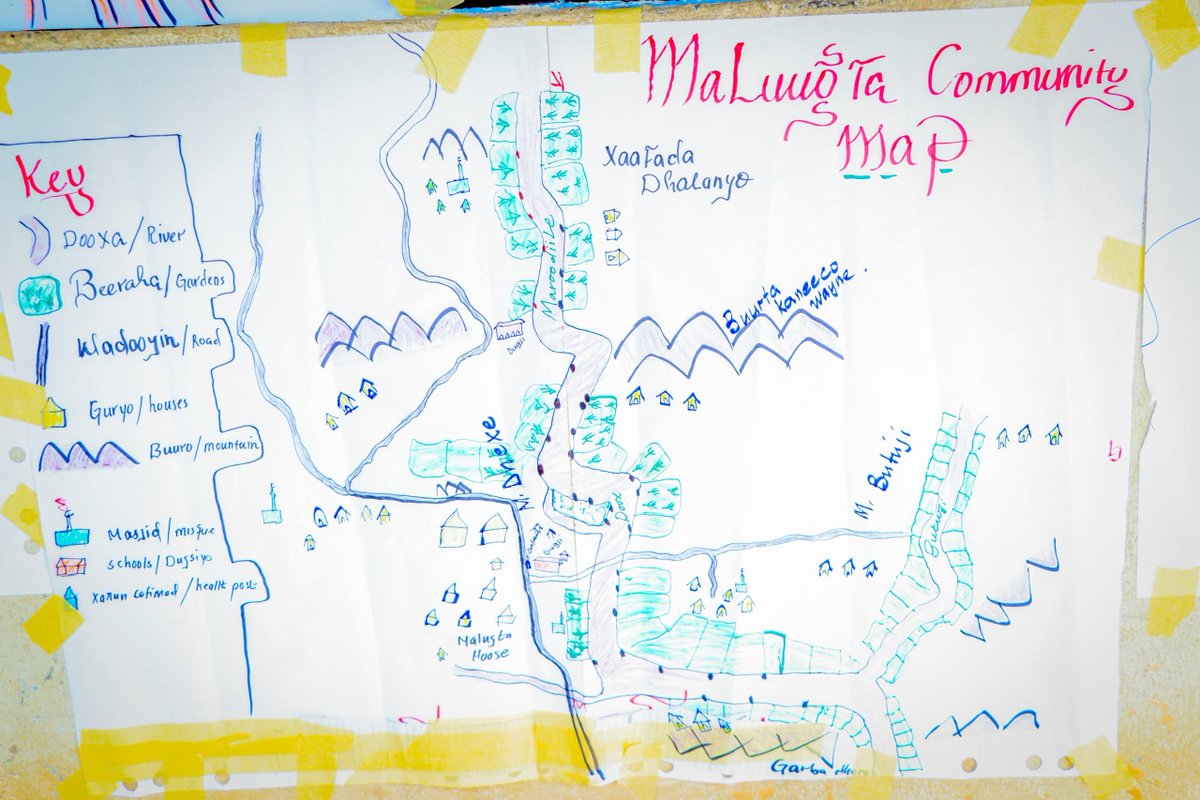 MaLuugTa Community
Map
Key
Dooxa/River
Beeraha/Gardens
Wadooyin/Road
Guryo/houses
Buuro/mountain
Massid/misque
schools/Dugsiyo
Xarun cofimad/health post
Xaafada
Dhalanyo
Maroodiile
Buurta
Kaneeco
wayne.
Dugsi
M. Butuji
Dugsi
Malugta
Hoose
Garba